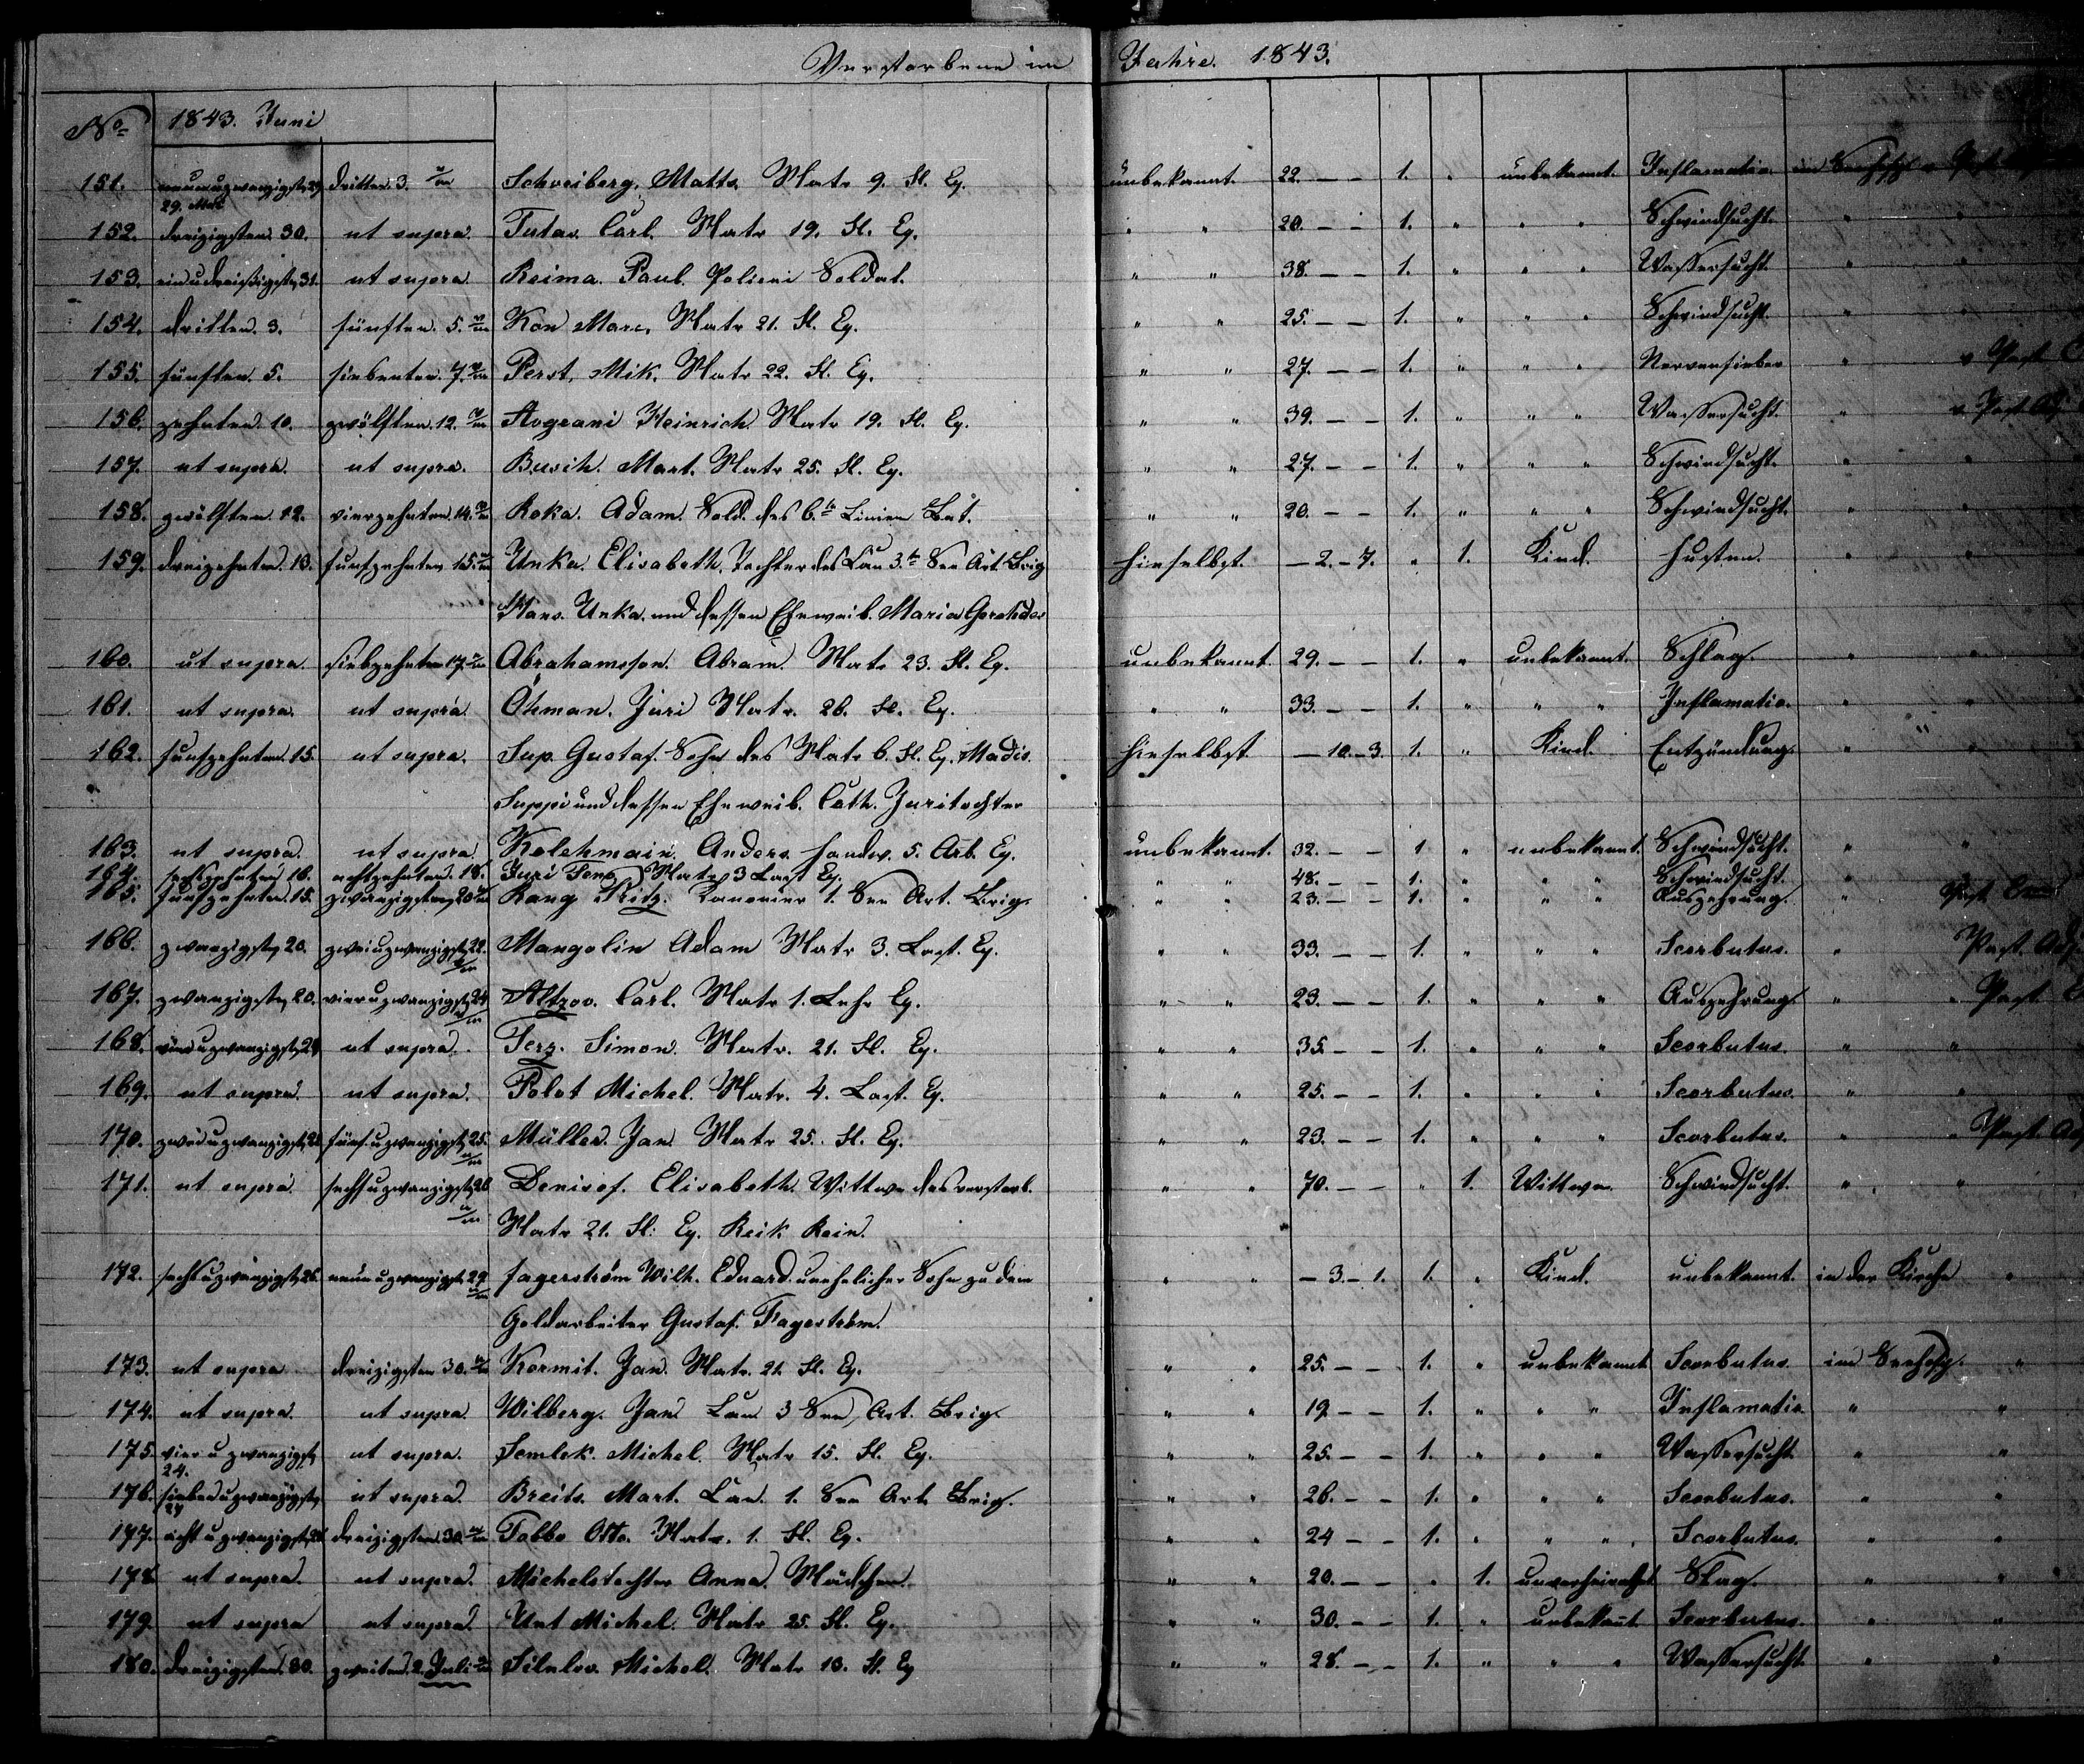 Verstorbene im Jahre. 1843.
No 1843. Juni
151. neunuzwanzigsten 29 dritten 3. Schreiberg, Matts, Matr 9. Fl. Eq. unbekannt. 22. — — 1. " unbekannt. Inflamatio. im Seehospl.
29. Mai
152. dreizigsten. 30. ut supra. Tutav. Carl. Matr 19. Fl. Eq. " " 20. — — 1. " " " Schwindsucht. " "
153. einudreissigsten 31. ut supra Reima. Paul. Polizei Soldat. " " 38. — — 1. " " " Wassersucht. " "
154. dritten. 3. fünften. 5. Kon Marc, Matr 21. Fl. Eq. " " 25. — — 1. " " " Schwindsucht. " "
155. fünften. 5. siebenten. 7. Perst, Mik. Matr 22. Fl. Eq. " " 27. — — 1. " " " Nervenfieber " v Past.
156. zehnten. 10. zwölften. 12. Avgeani Heinrich Matr 19. Fl. Eq. " " 39. — — 1. " " " Wassersucht. " v Past. Adj
157. ut supra. ut supra. Busch. Mart. Matr 25. Fl. Eq. " " 27. — — 1. " " " Schwindsucht. " "
158. zwölften. 12. vierzehnten. 14. Roka. Adam. Sold. des 6. Linien Bat. " " 20. — — 1. " " " Schwindsucht. " "
159. dreizehnten. 13. funfzehnten 15. Unka. Elisabeth. Tochter des Can 3. See Art. Brig hieselbst. — 2. — 7. " 1. Kind. Husten. " "
Hans. Unka. und dessen Eheweib. Maria
160. ut supra siebzehnten 17. Abrahamsson. Abram. Matr 23. Fl. Eq. unbekannt. 29. — — 1. " unbekannt. Schlag. " "
161. ut supra. ut supra. Öhman. Juri Matr. 26. Fl. Eq. " " 33. — — 1. " " " Inflamatio. " "
162. funfzehnten. 15. ut supra. Sup. Gustaf. Sohn des Matr 6. Fl. Eq. Madis. hieselbst — 10. — 3. 1. " Kind. Entzündung. " "
Suppi und dessen Eheweib. Cath. Juritochter
163. ut supra. ut supra. Kolehmain. Anders. Handw. 5. Arb. Eq. unbekannt. 32. — — 1 " unbekannt. Schwindsucht. " "
164. sechzehnten 16. achtzehnten. 18. Juri Matr 3 Last Eq. " " 48. — — 1. " " " Schwindsucht. "
165. Funfzehnten. 15. zwanzigsten 20 Rang Kanonier 1. See Art. Brig. " " 23. — — 1. " " " Auszehrung. " Past.
166. zwanzigsten 20. zweiuzwanzigsten 22. Mangolin Adam Matr 3. Last. Eq. " " 33. — — 1. " " " Scorbutus. " Past. Adj
167. zwanzigsten 20. vieruzwanzigsten 24 Altzov. Carl. Matr 1. Lehr Eq. " " 23. — — 1. " " " Auszehrung. " " Past.
168. vieruzwanzigsten 24 ut supra. Terz. Simon. Matr. 21. Fl. Eq. " " 35. — — 1. " " " Scorbutus. " "
169. ut supra. ut supra. Polot Michel. Matr. 4. Last. Eq. " " 25. — — 1. " " " Scorbutus. " "
170. zweiuzwanzigsten 22 fünfuzwanzigsten 25. Müller. Jan. Matr 25. Fl. Eq. " " 23. — — 1. " " " Scorbutus. " " Past. Adj
171. ut supra sechsuzwanzigsten 26 Denisof. Elisabeth. Wittwe des verstorb. " " 70. — — " 1. Wittwe. Schwindsucht. " "
Matr 21. Fl: Eq. Reik Rein.
172. sechsuzwanzigsten 26. neunuzwanzigsten 29 Fagerström Wilh. Eduard. unehelicher Sohn zu dem " " — 3. — 1. 1. " Kind. unbekannt. in der Kirche "
Goldarbeiter Gustaf. Fagerström.
173. ut supra dreizigsten 30. Kermit. Jan. Matr. 21. Fl. Eq. " " 25. — — 1. " unbekannt Scorbutus. im Seehospl. "
174. ut supra. ut supra Wilberg. Jan Can 3 See, Art. Brig. " " 19 — — 1. " " " Inflamatio " "
175. vier u zwanzigsten ut supra. Semlek. Michel. Matr 15. Fl. Eq. " " 25. — — 1. " " " Wassersucht. " "
24.
176. siebenuzwanzigsten ut supra. Breits. Mart. Can. 1. See Art. Brig. " " 26. — — 1. " " " Scorbutus. " "
27
177. acht u zwanzigsten 28 dreizigsten 30 Tobbo Otto. Matr. 1. Fl. Eq. " " 24 — — 1. " " " Scorbutus. " "
178 ut supra. ut supra. Michelstochter Anna. Mädchen. " " 20. — — " 1. unverheirathet Slag. " "
179. ut supra ut supra. Unt Michel. Matr 25. Fl. Eq. " " 30. — — 1. " unbekannt Scorbutus. " "
180. dreizigsten. 30. zweiten. 2. Juli Silalov. Michel. Matr 13. Fl. Eq " " 28. — — 1. " " " Wassersucht. " "